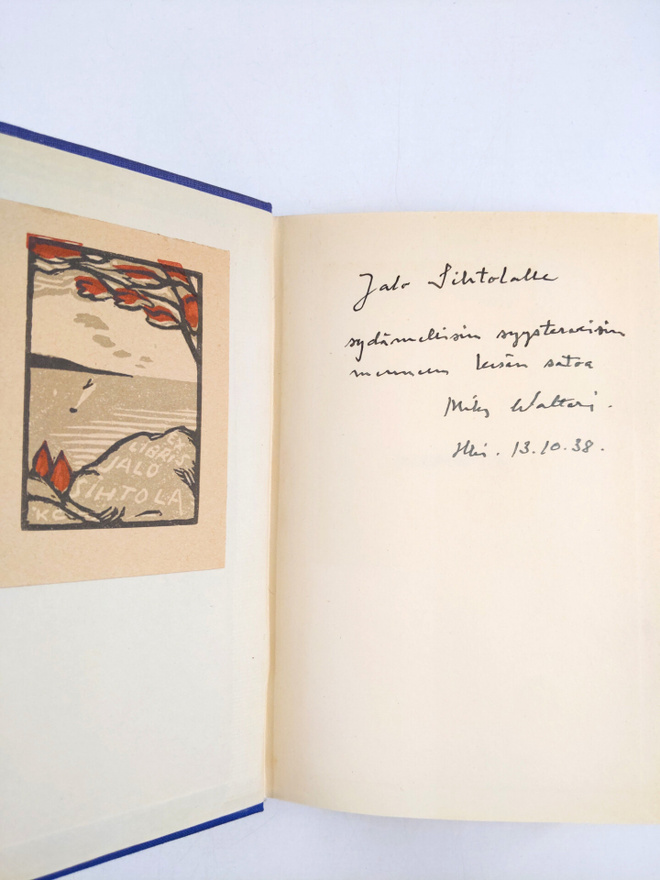 EX
LIBRIS
JALO
SIHTOLA
KC
Jalo Sihtolalle
sydämellisin syysterveisin
menneen kesän satoa
Mika Waltari.
Hki. 13.10.38.